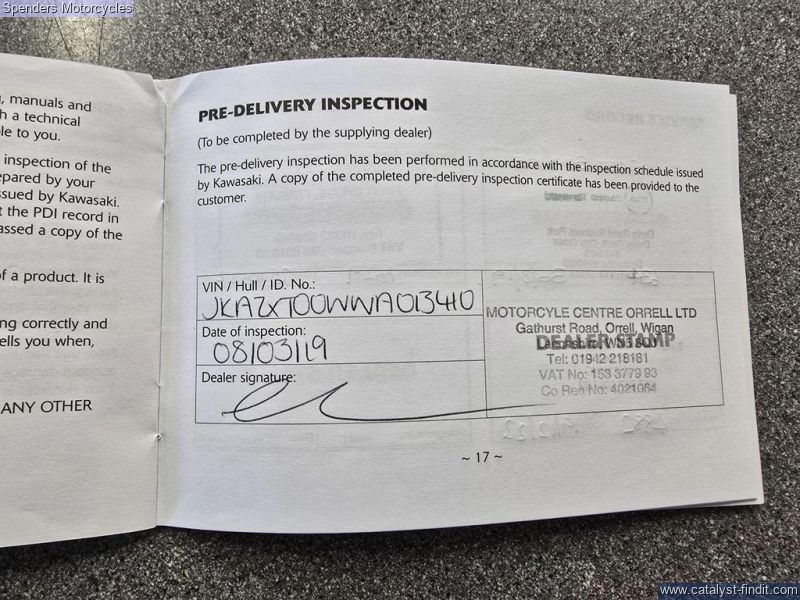 Spenders Motorcycles
, manuals and
h a technical
le to you.
inspection of the
epared by your
ssued by Kawasaki.
t the PDI record in
assed a copy of the
f a product. It is
ng correctly and
ells you when,
ANY OTHER
PRE-DELIVERY INSPECTION
(To be completed by the supplying dealer)
The pre-delivery inspection has been performed in accordance with the inspection schedule issued
by Kawasaki. A copy of the completed pre-delivery inspection certificate has been provided to the
customer.
VIN / Hull / ID. No.:
JKAZXT00WWA013410
Date of inspection:
08/03/19
Dealer signature:
MOTORCYLE CENTRE ORRELL LTD
Gathurst Road, Orrell, Wigan
DEALER STAMP
Tel: 01942 218181
VAT No: 153 3779 93
Co Reg No: 4021064
~ 17 ~
www.catalyst-findit.com